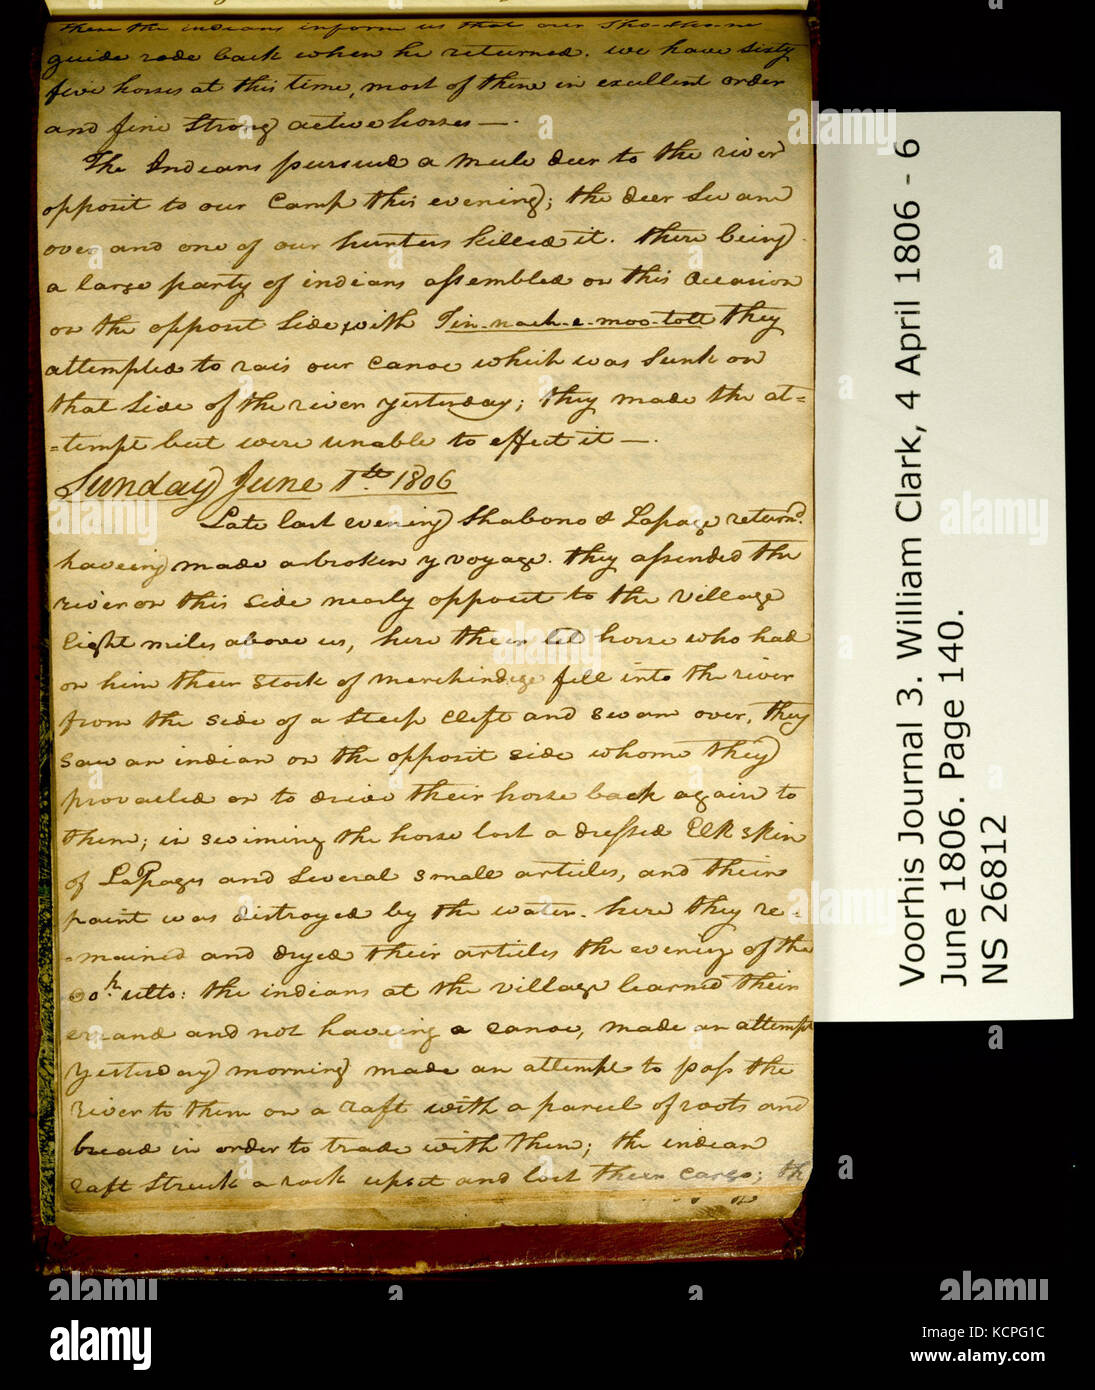 these the indians inform us that our Sho-sho-ne
guide rode back when he returned. we have sixty
five horses at this time, most of them in excellent order
and fine strong active horses —.
The Indians pursued a mule deer to the river
opposit to our Camp this evening; the deer Swam
over and one of our hunters killed it. there being
a large party of indians assembled on this Occasion
on the opposit Side, with Tin-nach-e-moo-toll they
attempted to rais our canoe which was Sunk on
that Side of the river yesterday; they made the at=
=tempt but were unable to effect it —.
Sunday June 1st. 1806
Late last evening Shabono & Lapage returnd.
haveing made a broken voyage. they assended the
river on this Side nearly opposit to the village
Eight miles above us, here their led horse who had
on him their Stock of merchindize fell into the river
from the Side of a Steep Clift and Swam over, they
Saw an indian on the opposit Side whome they
provailed on to drive their horse back again to
them; in swiming the horse lost a dressed Elk skin
of LaPages and Several Small articles, and their
paint was distroyed by the water. here they re-
-mained and dryed their articles the evening of the
30th. ulto: the indians at the village learned their
errand and not haveing a canoe, made an attempt
yesterday morning made an attempt to pass the
river to them on a raft with a parcel of roots and
bread in order to trade with them; the indian
raft Struck a rock upset and lost their cargo; th
Voorhis Journal 3. William Clark, 4 April 1806 - 6
June 1806. Page 140.
NS 26812
alamy
Image ID: KCPG1C
www.alamy.com